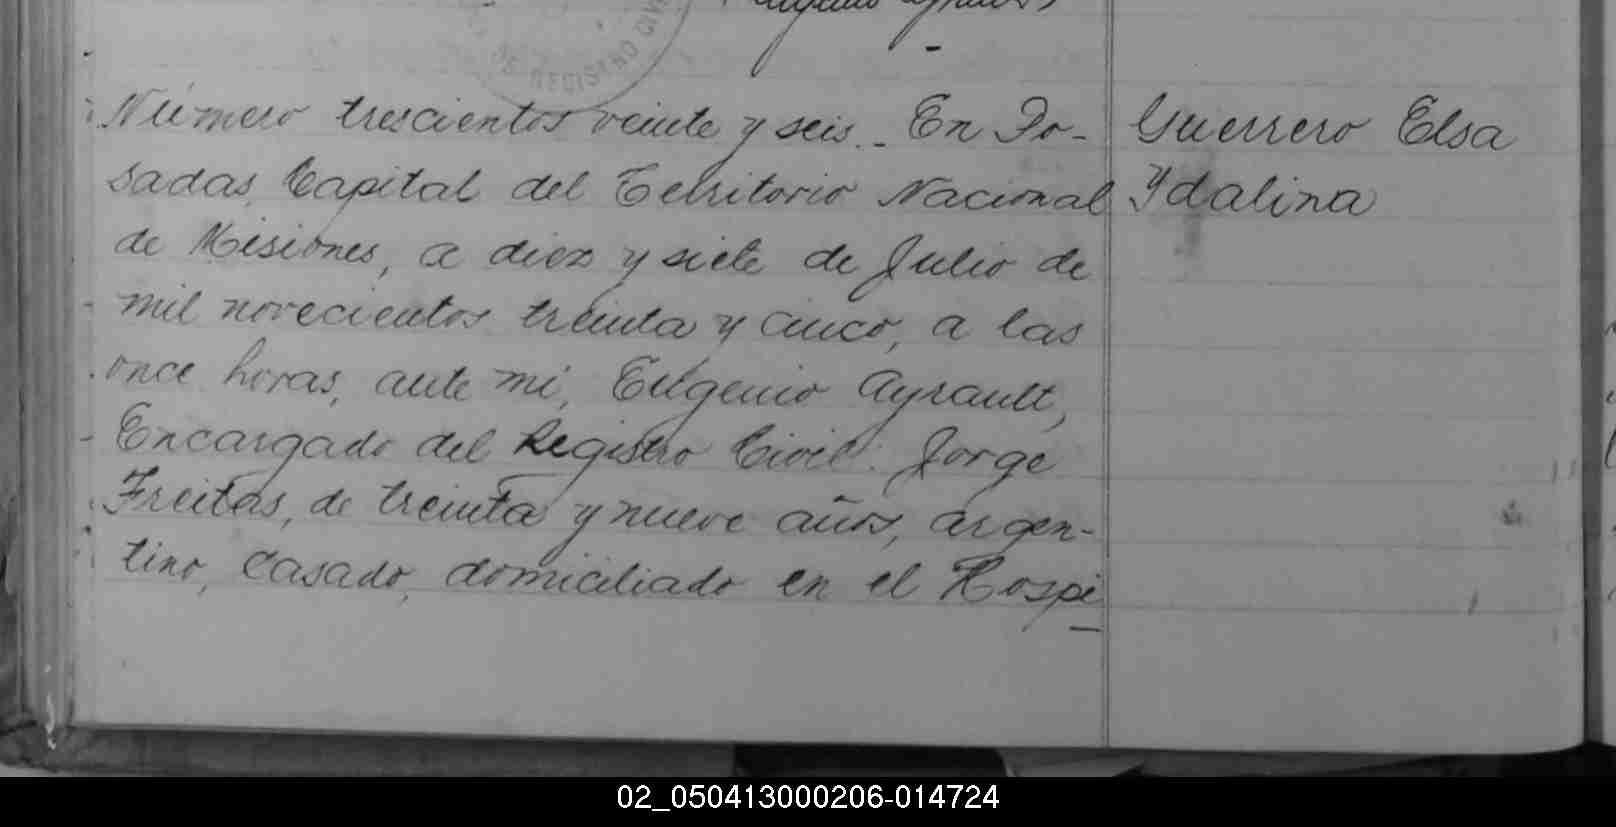 DE REGISTRO CIVI
Número trescientos veinte y seis.- En Po-
sadas, Capital del Territorio Nacional
de Misiones, a diez y siete de Julio de
mil novecientos treinta y cinco, a las
once horas, ante mi, Eugenio Ayrault,
Encargado del Registro Civil: Jorge
Freitas, de treinta y nueve años, argen-
tino, casado, domiciliado en el Hospi
Guerrero Elsa
Ydalina
02_050413000206-014724